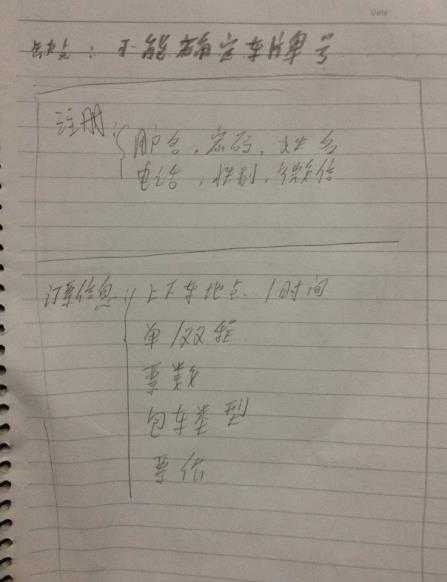 不能确定车牌单号
注册 用户名,密码,姓名
电话,性别,微信
订票信息 上下车地点、/时间
单/双程
票数
包车类型
票价